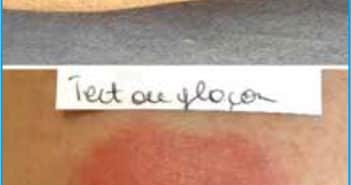 Test au glaçon